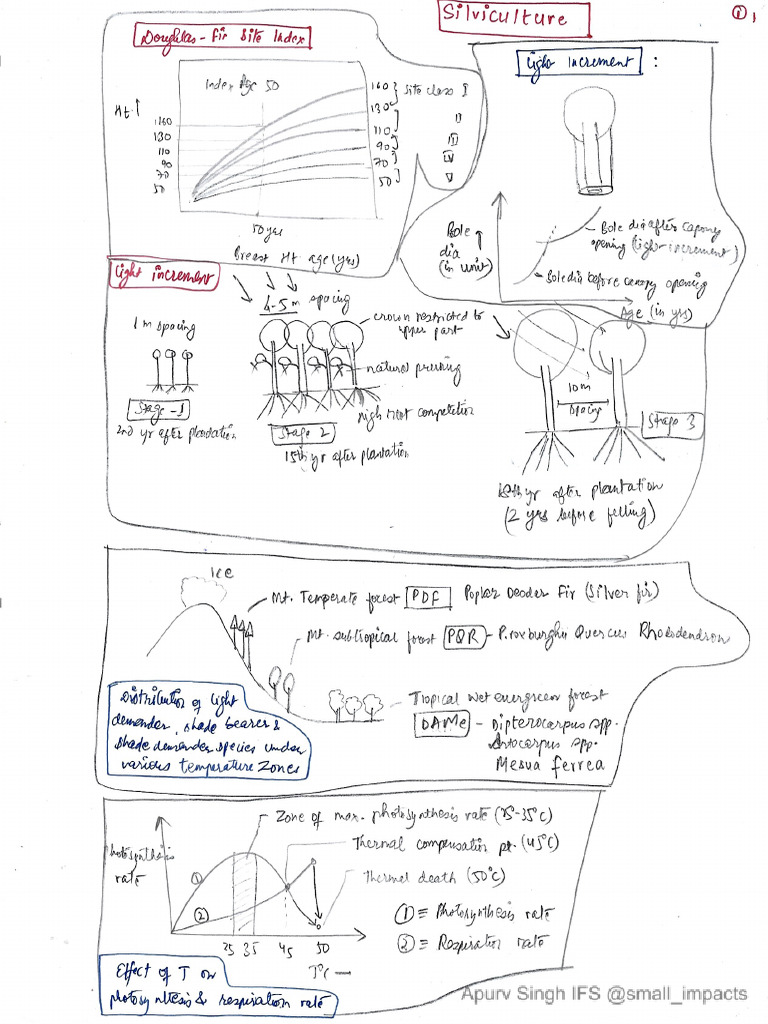 Silviculture
① 1
Douglas-fir Site Index
Index Age 50
Ht ↑
160
130
110
90
70
50
160 } Site class I
130
110 II
90 III
70 IV
50 V
50 yrs
Breast Ht age (yrs)
Light increment :
Bole dia (in unit)
Bole dia after canopy
opening (light-increment)
Bole dia before canopy opening
Age (in yrs)
Light increment
1 m spacing
Stage-1
2nd yr after plantation
4-5 m spacing
crown restricted to
upper part
natural pruning
high root competition
Stage 2
15th yr after plantation
10m
spacing
Stage 3
18th yr after plantation
(2 yrs before felling)
Ice
Mt. Temperate forest PDF Poplar Deodar Fir (Silver fir)
Mt. subtropical forest PQR - P. roxburghii Quercus Rhododendron
Tropical wet evergreen forest
DAMe - Dipterocarpus spp.
Artocarpus spp.
Mesua ferrea
Distribution of light
demander, shade bearer &
shade demander species under
various temperature zones
Zone of max. photosynthesis rate (25-35°C)
Thermal compensation pt. (45°C)
Thermal death (50°C)
Photosynthesis
rate
①
②
① ≡ Photosynthesis rate
② ≡ Respiration rate
25 35 45 50
T°C —
Effect of T on
photosynthesis & respiration rate
Apurv Singh IFS @small_impacts